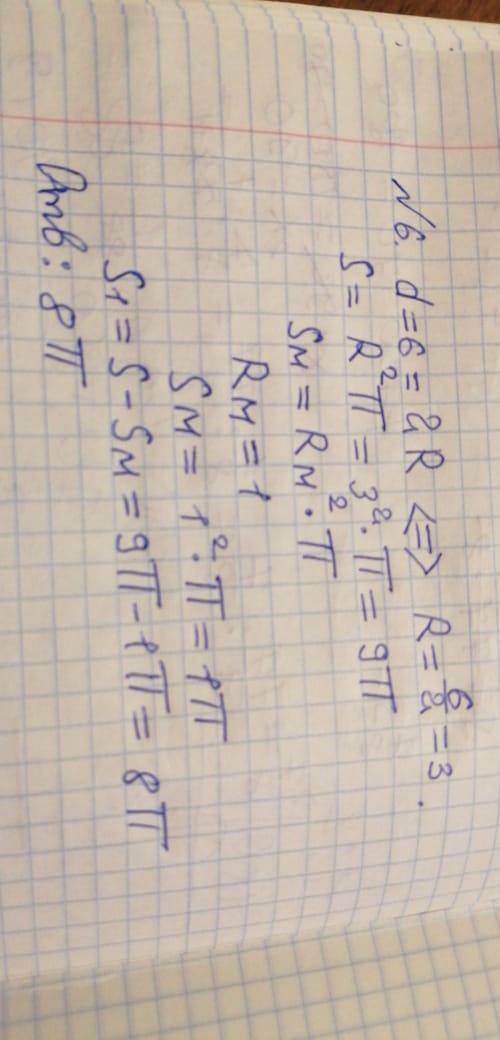 №6. d = 6 = 2R <=> R = 6/2 = 3.
S = R²π = 3²·π = 9π
Sм = Rм²·π
Rм = 1
Sм = 1²·π = 1π
S1 = S - Sм = 9π - 1π = 8π
Отв: 8π